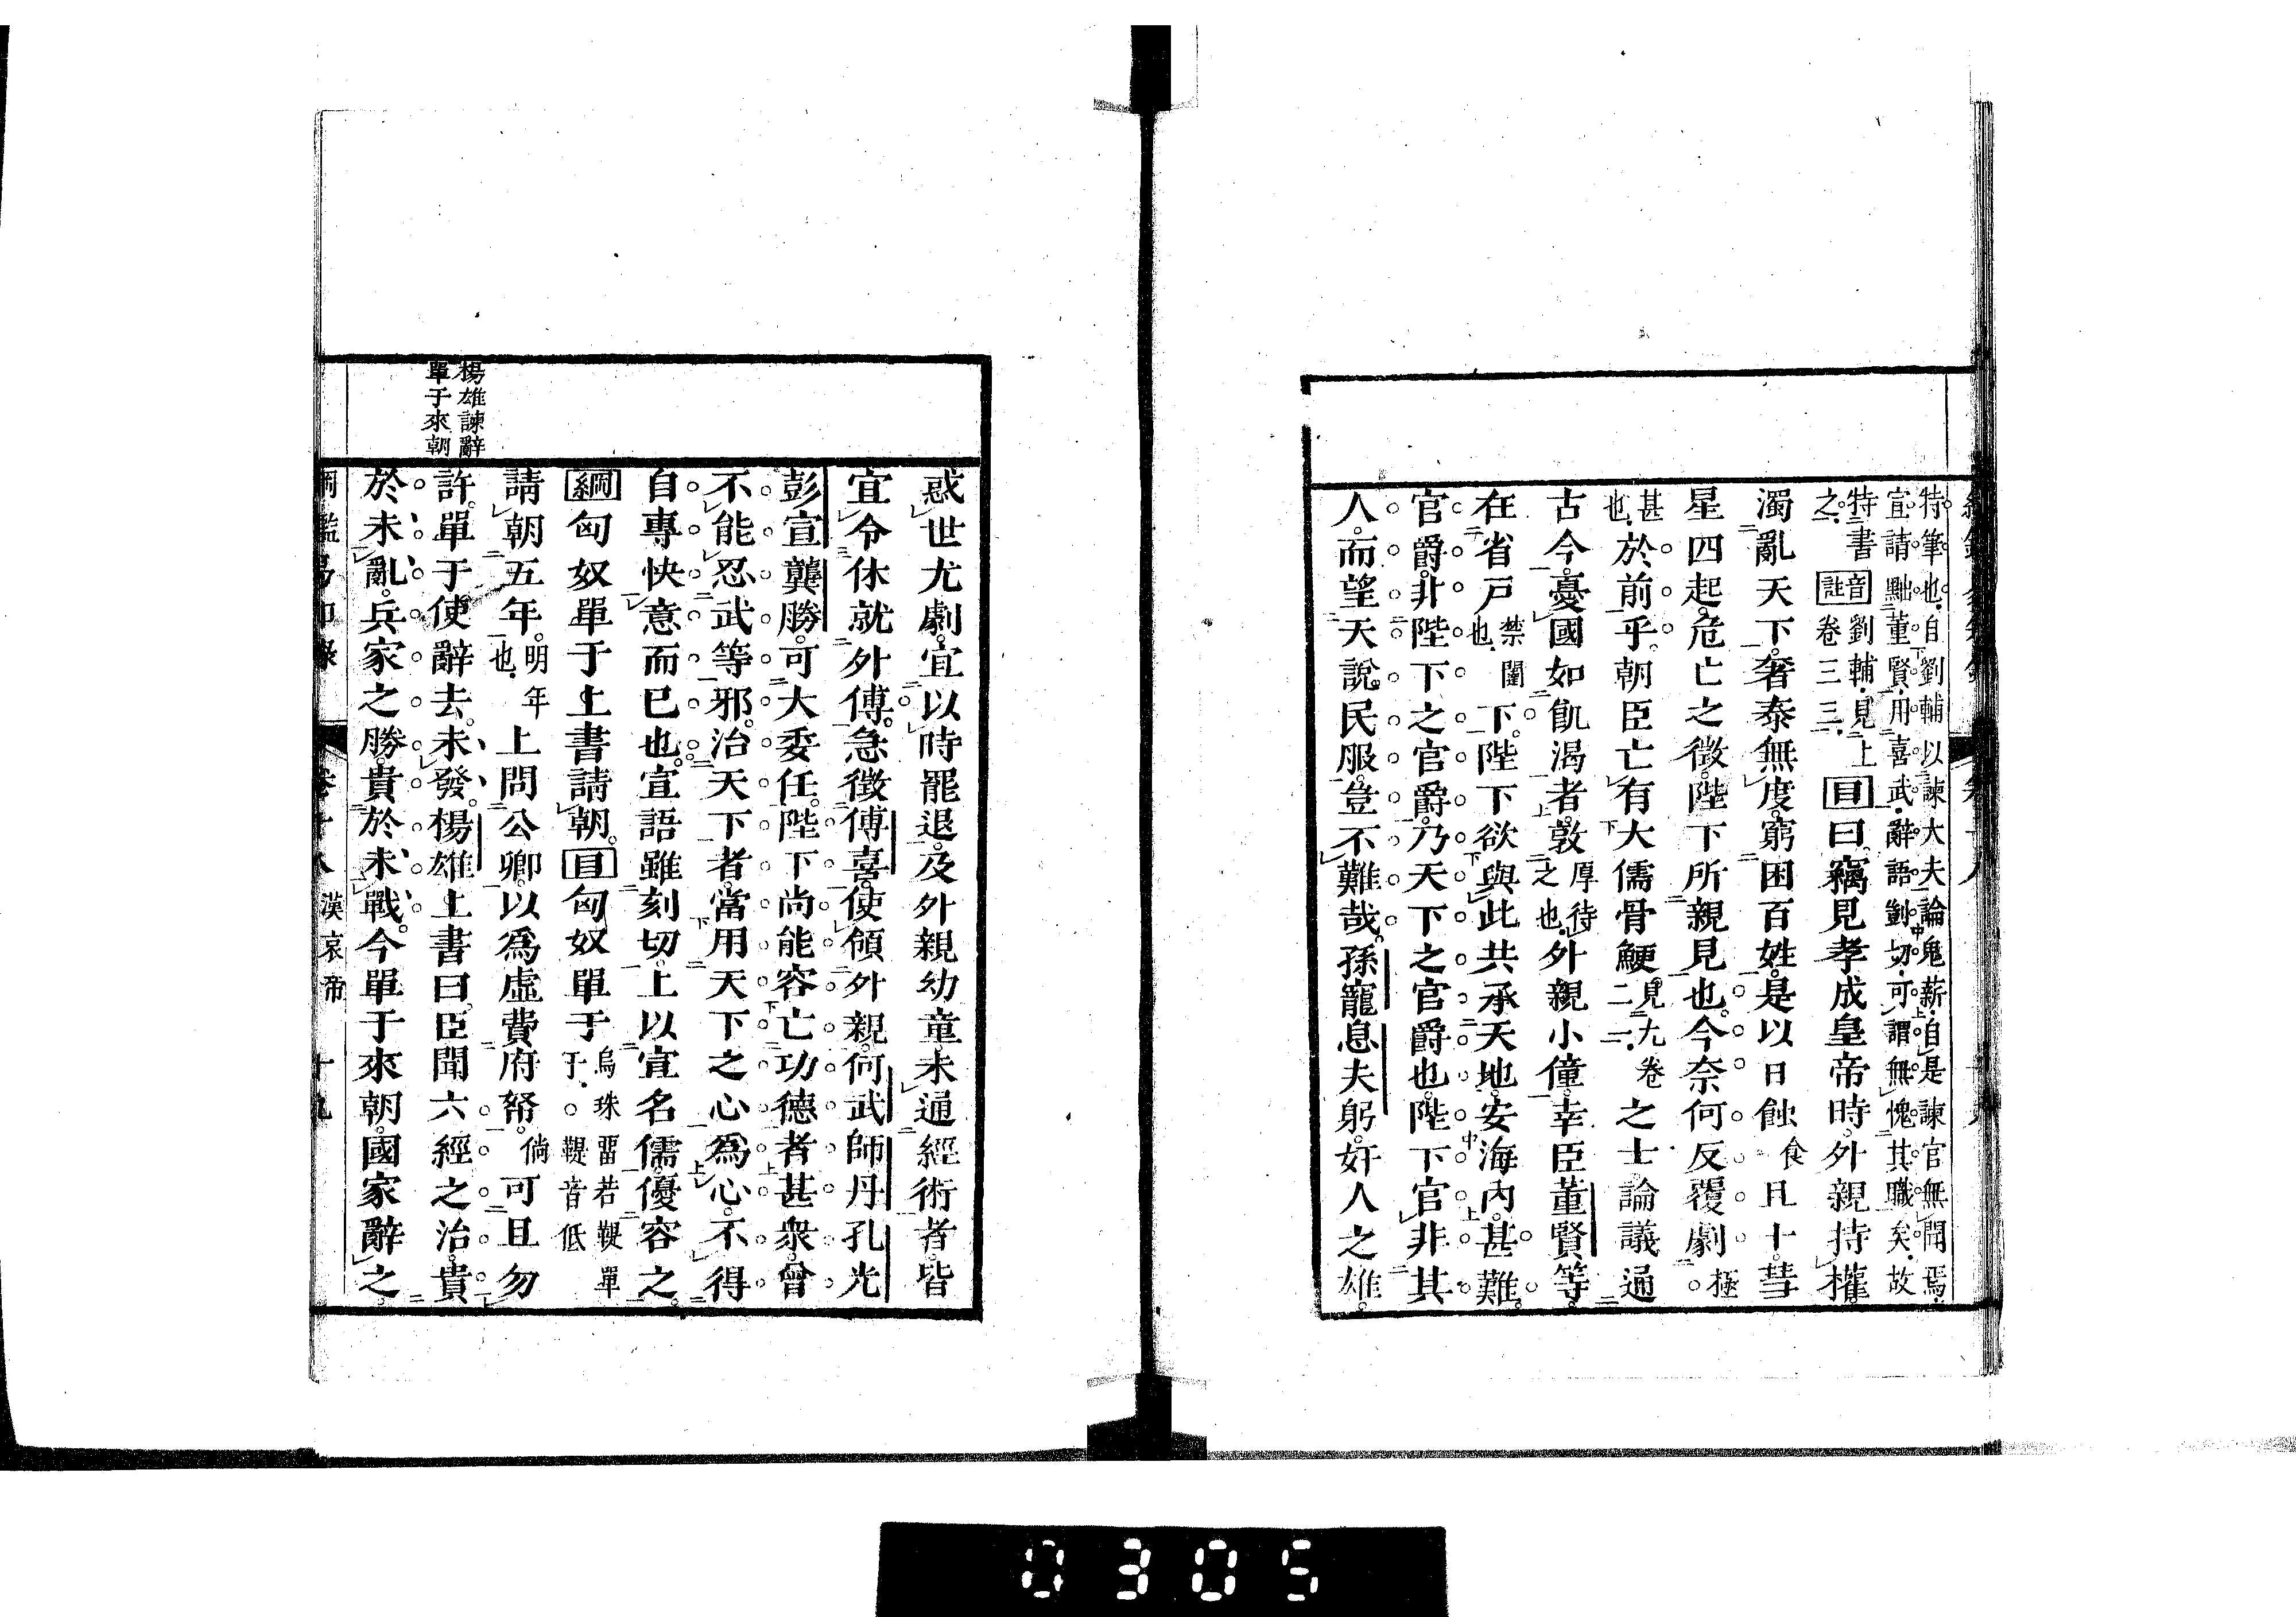 特筆也自劉輔以諫大夫論鬼薪自是諫官無聞焉
宣請黜董賢用喜武辭語剴切可謂無愧其職矣故
特書
之
音
註
劉輔見上
卷三三
目曰竊見孝成皇帝時外親持權
濁亂天下奢泰無度窮困百姓是以日蝕食且十彗
星四起危亡之徵陛下所親見也今奈何反覆劇極
甚
也
於前乎朝臣亡有大儒骨鯁見九卷
二一
之士論議通
古今憂國如飢渴者敦厚待
之也
外親小僮幸臣董賢等
在省戶禁闥
也
下陛下欲與此共承天地安海內甚難
官爵非陛下之官爵乃天下之官爵也陛下官非其
人而望天說民服豈不難哉孫寵息夫躬奸人之雄
惑世尤劇宜以時罷退及外親幼童未通經術者皆
宜令休就外傅急徵傅喜使領外親何武師丹孔光
彭宣龔勝可大委任陛下尚能容亡功德者甚衆曾
不能忍武等邪治天下者當用天下之心爲心不得
自專快意而已也宣語雖刻切上以宣名儒優容之
綱匈奴單于上書請朝目匈奴單于烏珠畱若鞮單
于鞮音低
請朝五年明年
也
上問公卿以爲虛費府帑倘可且勿
許單于使辭去未發楊雄上書曰臣聞六經之治貴
於未亂兵家之勝貴於未戰今單于來朝國家辭之
楊雄諫辭
單于來朝
漢哀帝 十九
0305